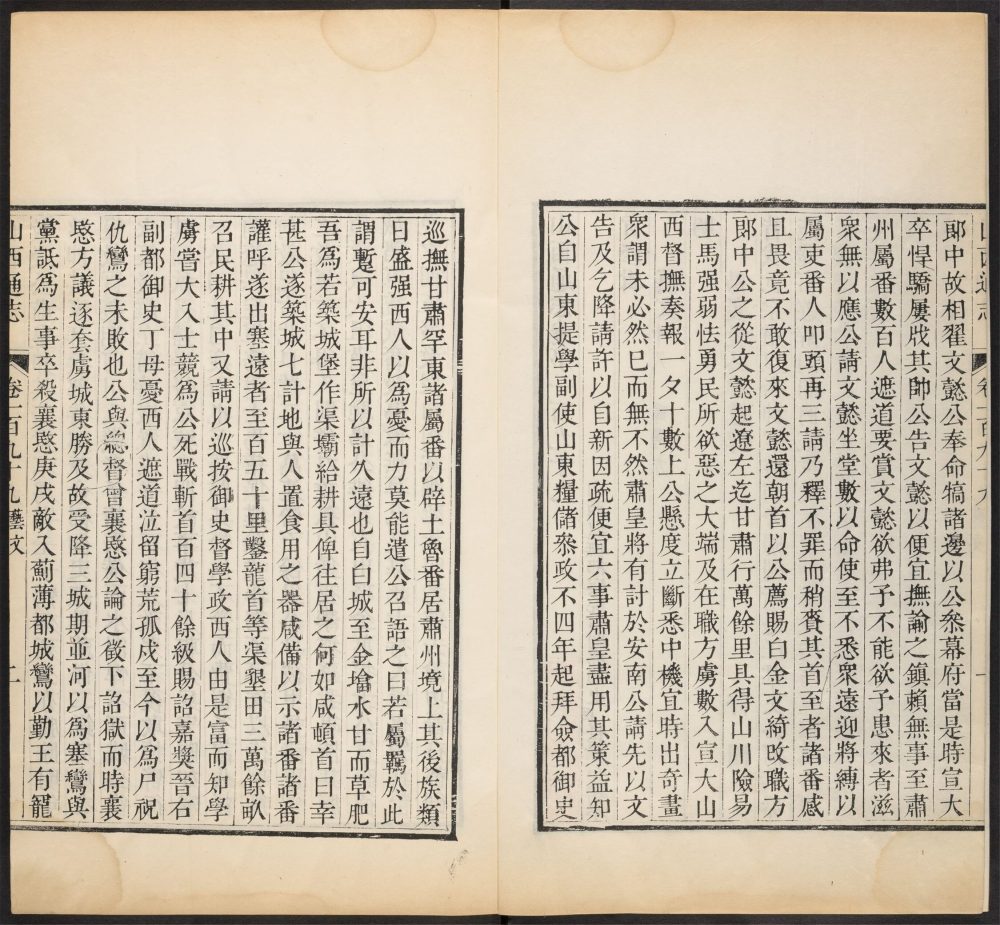 山西通志 卷一百九十九
郎中故相翟文懿公奉命犒諸邊以公叅幕府當是時宣大
卒悍驕屢戕其帥公告文懿以便宜撫諭之鎮賴無事至肅
州屬番數百人遮道要賞文懿欲弗予不能欲予患來者滋
衆無以應公請文懿坐堂數以命使至不悉衆遠迎將縛以
屬吏番人叩頭再三請乃釋不罪而稍賚其首至者諸番感
且畏竟不敢復來文懿還朝首以公薦賜白金文綺改職方
郎中公之從文懿起遼左迄甘肅行萬餘里具得山川險易
士馬强弱怯勇民所欲惡之大端及在職方虜數入宣大山
西督撫奏報一夕十數上公懸度立斷悉中機宜時出奇畫
衆謂未必然巳而無不然肅皇將有討於安南公請先以文
告及乞降請許以自新因疏便宜六事肅皇盡用其策益知
公自山東提學副使山東糧儲叅政不四年起拜僉都御史
巡撫甘肅罕東諸屬番以辟土魯番居肅州境上其後族類
日盛强西人以爲憂而力莫能遣公召語之曰若屬羈於此
謂蹔可安耳非所以計久遠也自白城至金墖水甘而草肥
吾爲若築城堡作渠壩給耕具俾往居之何如咸頓首曰幸
甚公遂築城七計地與人置食用之器咸備以示諸番諸番
讙呼遂出塞遠者至百五十里鑿龍首等渠墾田三萬餘畝
召民耕其中又請以巡按御史督學政西人由是富而知學
虜嘗大入士競爲公死戰斬首百四十餘級賜詔嘉獎晉右
副都御史丁母憂西人遮道泣留窮荒孤戍至今以爲尸祝
仇鸞之未敗也公與總督曾襄愍公論之徵下詔獄而時襄
愍方議逐套虜城東勝及故受降三城期並河以爲塞鸞與
黨詆爲生事卒殺襄愍庚戌敵入薊薄都城鸞以勤王有寵
山西通志 卷一百九十九 藝文 二